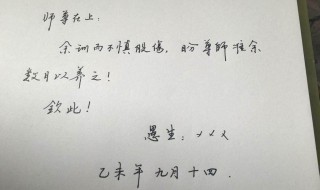 师尊在上:
余训而不慎股伤,盼尊师准余
数月以养之!
钦此!
愚生:×××
乙未年九月十四.